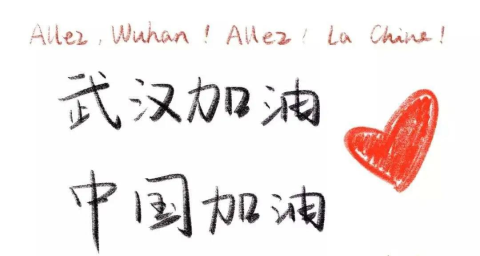 Allez, Wuhan ! Allez ! La Chine !
武汉加油
中国加油